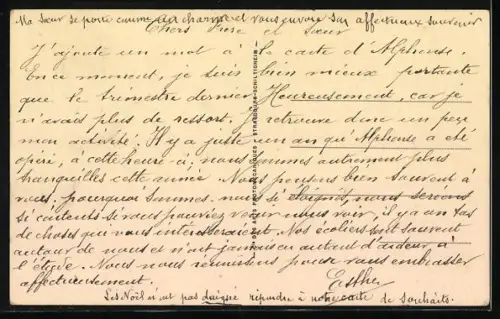 Ma sœur se porte comme un charme et vous envoie son affectueux souvenir
Chers Frère et Sœur
J'ajoute un mot à la carte d'Alphonse.
En ce moment, je suis bien mieux portante
que le trimestre dernier Heureusement, car je
n'avais plus de ressort. Je retrouve donc un peu
mon activité. Il y a juste un an qu'Alphonse a été
opéré, à cette heure-ci, nous sommes autrement plus
tranquilles cette année. Nous pensons bien souvent à
vous, pourquoi sommes-nous si éloignés, nous serions
si contents si vous pouviez venir nous voir, il y a un tas
de choses qui vous intéresseraient. Nos écoliers sont souvent
autour de nous et n'ont jamais eu autant d'ardeur à
l'étude. Nous nous réunissons pour vous embrasser
affectueusement.
Esther
Les Noël n'ont pas daigné répondre à notre carte de souhaits.
ARTS PHOTOMÉCANIQUES STRASBOURG-SCHILTIGHEIM